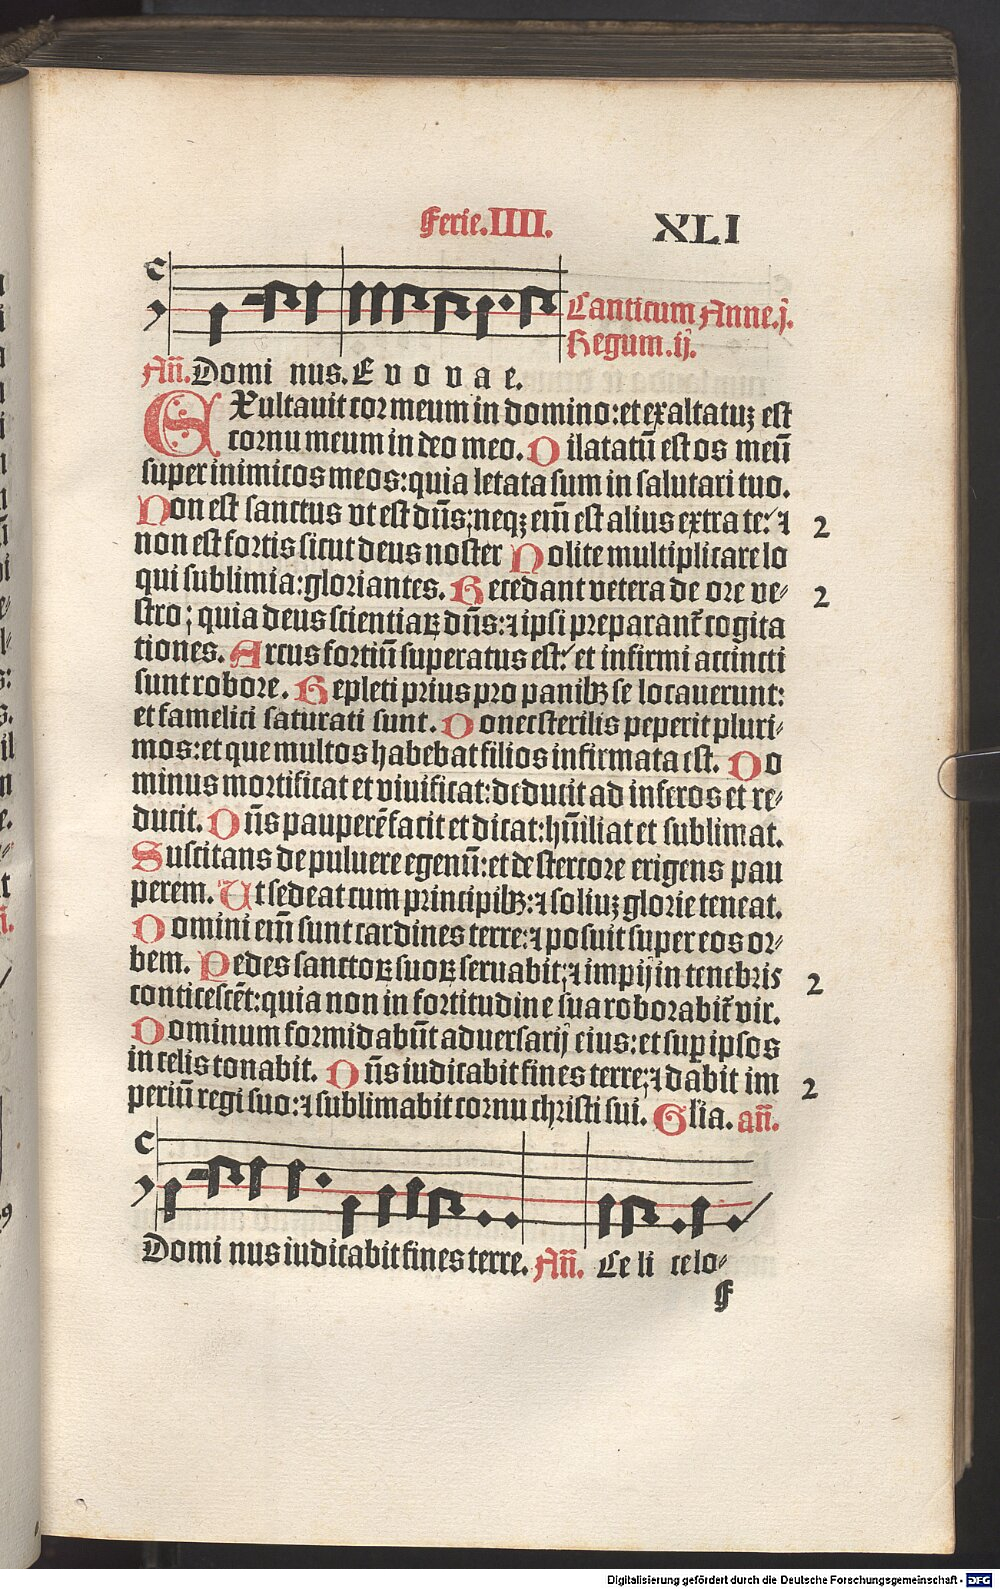 Ferie.IIII. XLI
Canticum Anne.j.
Regum.ij.
Añ. Domi nus. E v o v a e.
EXultauit cor meum in domino: et exaltatuꝫ est
cornu meum in deo meo. Dilatatū est os meū
super inimicos meos: quia letata sum in salutari tuo.
Non est sanctus vt est dn̄s; neqꝫ em̄ est alius extra te: ⁊ 2
non est fortis sicut deus noster Nolite multiplicare lo
qui sublimia: gloriantes. Recedant vetera de ore ve⸗ 2
stro; quia deus scientiaꝝ dn̄s: ⁊ ipsi preparant᷑ cogita
tiones. Arcus fortiū superatus est: et infirmi accincti
sunt robore. Repleti prius pro panibꝫ se locauerunt:
et famelici saturati sunt. Donec sterilis peperit pluri⸗
mos: et que multos habebat filios infirmata est. Do
minus mortificat et viuificat: deducit ad inferos et re⸗
ducit. Dn̄s pauperē facit et ditat: hūiliat et sublimat.
Suscitans de puluere egenū: et de stercore erigens pau
perem. Ut sedeat cum principibꝫ: ⁊ soliuꝫ glorie teneat.
Domini em̄ sunt cardines terre: ⁊ posuit super eos or⸗
bem. Pedes sanctoꝝ suoꝝ seruabit; ⁊ impij in tenebris 2
conticescēt: quia non in fortitudine sua roborabit᷑ vir.
Dominum formidabūt aduersarij eius: et suꝑ ipsos
in celis tonabit. Dn̄s iudicabit fines terre; ⁊ dabit im 2
periū regi suo: ⁊ sublimabit cornu christi sui. Gl̄ia. añ.
Domi nus iudicabit fines terre. Añ. Ce li celo⸗
f
Digitalisierung gefördert durch die Deutsche Forschungsgemeinschaft - DFG